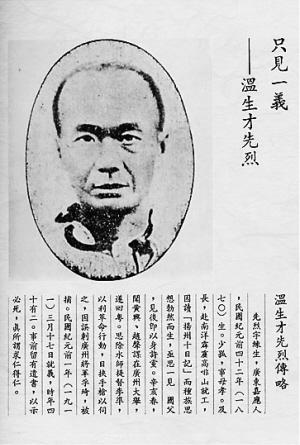 只見一義
——溫生才先烈
溫生才先烈傳略
先烈字練生，廣東嘉應人
，民國紀元前四十二年（一八
七〇）生。少孤，事母孝。及
長，赴南洋霹靂高咱山就工，
因讀「揚州十日記」而種族思
想勃然而生，亟思一見　國父
，見後即以身許黨。辛亥春，
聞黃興、趙聲謀在廣州大舉，
遂回粵。思除水師提督李準，
以利革命行動，日挾手槍以伺
之，因誤刺廣州將軍孚琦，被
捕。民國紀元前一年（一九一
一）三月十七日就義，時年四
十有二。事前留有遺書，以示
必死，真所謂求仁得仁。